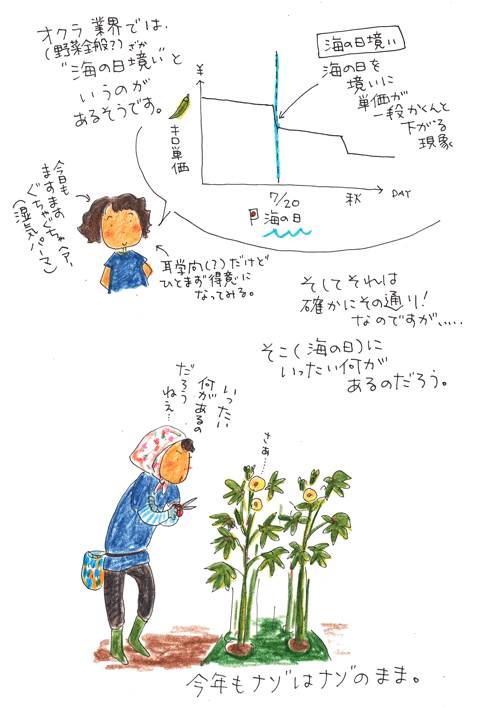 オクラ 業界では、
(野菜全般?)ざが
"海の日境い"と
いうのが
あるそうです。
¥
キロ単価
海の日境い
海の日を
境いに
単価が
一段がくんと
下がる
現象
7/20
秋
DAY
海の日
今日も
ますます
ぐちゃぐちゃヘアー
(湿気パーマ)
耳学問(?)だけど
ひとまず得意に
なってみる。
そしてそれは
確かにその通り!
なのですが、....
そこ(海の日)に
いったい何が
あるのだろう。
いったい
何があるの
だろう
ねえ…
さあ…
今年もナゾはナゾのまま。